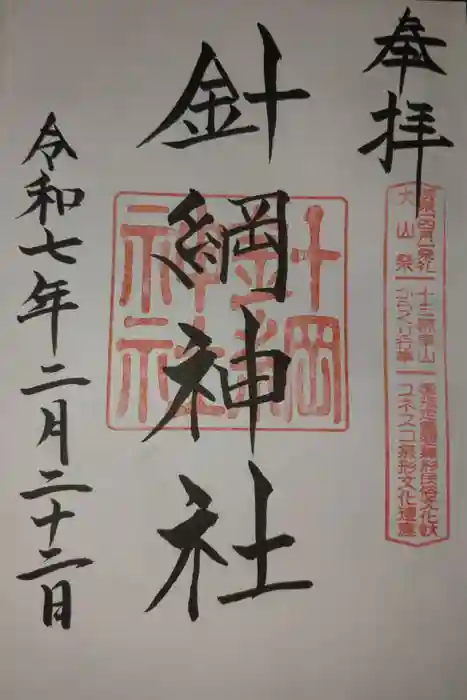 奉拝
大山祭
十三輌車山
からくり行事
国指定重要無形民俗文化財
ユネスコ無形文化遺産
針綱神社
針綱神社
令和七年二月二十二日